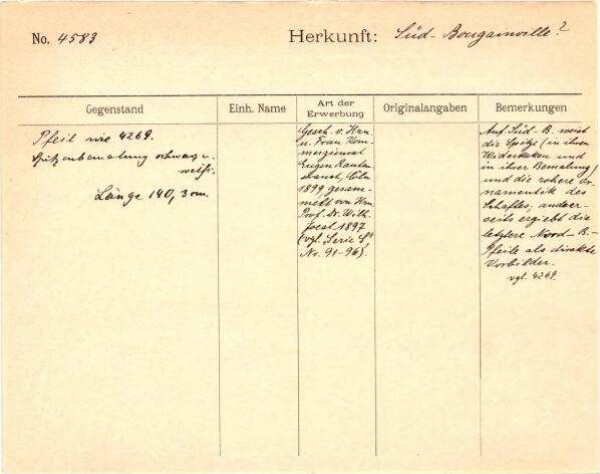 No. 4583
Herkunft: Süd-Bougainville?
Gegenstand
Einh. Name
Art der
Erwerbung
Originalangaben
Bemerkungen
Pfeil wie 4269.
Spitzenbemalung schwarz u.
weiß.
Länge 140,3 cm.
Gesch. v. Hrn
u. Frau Kom-
merzienrat
Eugen Rauten-
strauch, Cöln
1899 gesam-
melt von Hrn
Prof. Dr. Wilh.
Joest 1897
(vgl. Serie
No. 91-96).
Auf Süd-B. weist
die Spitze (in ihren
Widerhaken und
in ihrer Bemalung)
und die rohere Or-
namentik des
Schaftes, andrer-
seits ergiebt die
letztere Nord-B.-
Pfeile als direkte
Vorbilder.
vgl. 4269.